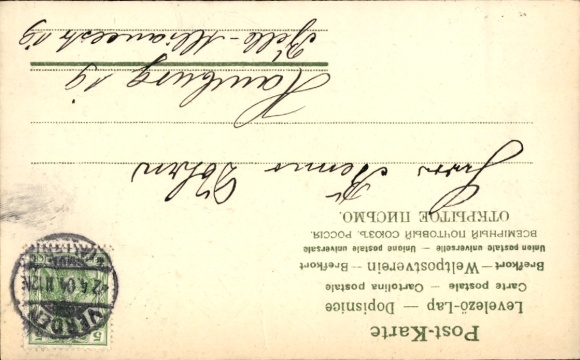 Post-Karte
Levelező-Lap — Dopisnice
Carte postale — Cartolina postale
Brefkort — Weltpostverein — Brefkort
Union postale universelle — Unione postale universale
ВСЕМІРНЫЙ ПОЧТОВЫЙ СОЮЗЪ. РОССІЯ.
ОТКРЫТОЕ ПИСЬМО.
Herrn Benno Dohrn
Hamburg 19
Belle-Alliancestr 19
VERDEN
5 5